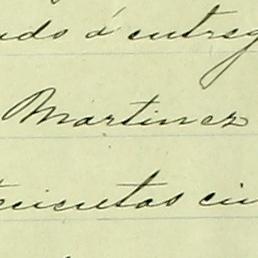 ado á entreg
Martinez
ecientas ci